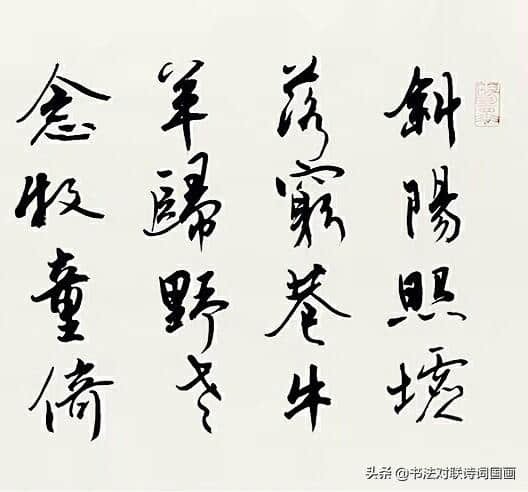 斜陽照墟
落窮巷牛
羊歸野老
念牧童倚
头条 @书法对联诗词国画